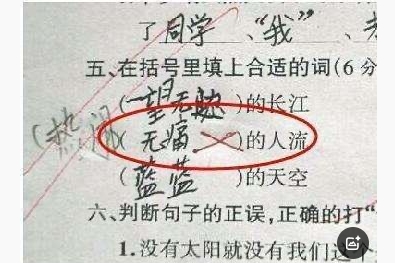 了同学、“我”、
五、在括号里填上合适的词(6分
(一望无边)的长江
(热闹(无痛)的人流
(蓝蓝)的天空
六、判断句子的正误,正确的打“
1.没有太阳就没有我们这个